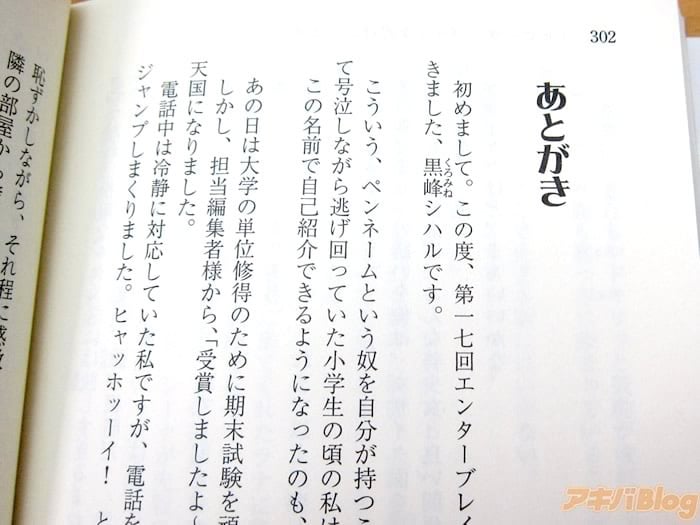 302
あとがき
初めまして。この度、第一七回エンターブレイ
きました、黒峰シハルです。
くろみね
こういう、ペンネームという奴を自分が持つこ
て号泣しながら逃げ回っていた小学生の頃の私は
この名前で自己紹介できるようになったのも、
あの日は大学の単位修得のために期末試験を頑
しかし、担当編集者様から、「受賞しましたよ～
天国になりました。
電話中は冷静に対応していた私ですが、電話を
ジャンプしまくりました。ヒャッホッーイ！　と
恥ずかしながら、それ程に感
隣の部屋か
アキバBlog